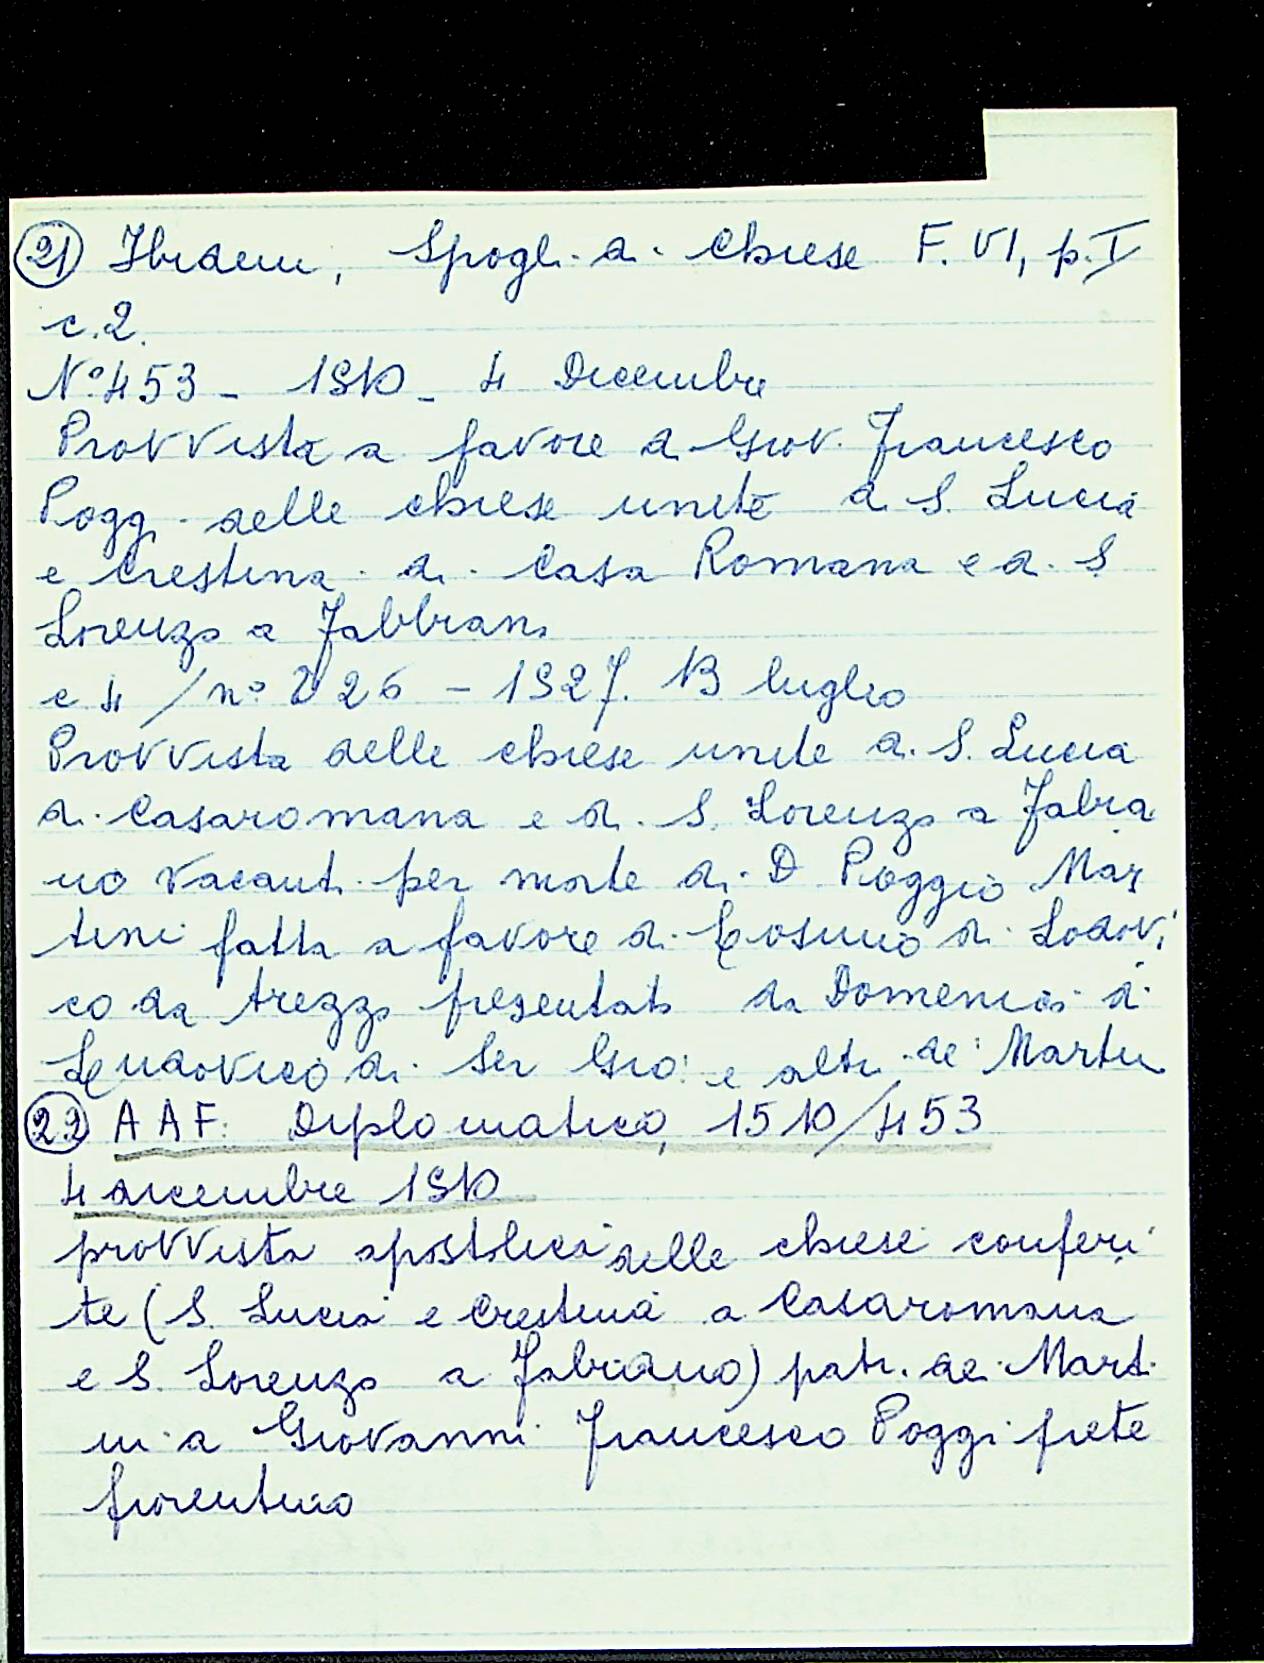 21 Ibidem, Spogli di Chiese F. VI, p. I
c. 2.
N° 453 - 1510 - 4 Dicembre
Provvista a favore di Giov. Francesco
Poggi delle chiese unite di S. Lucia
e Crestina di Casa Romana e di S
Lorenzo a Fabbrani
c 4 / n° 226 - 1527. 13 luglio
Provvista delle chiese unite di S. Lucia
di Casaromana e di S. Lorenzo a Fabria
no vacanti per morte di D Poggio Mar
tini fatta a favore di Cosimo di Lodovi
co da presentato da Domenico di
Ludovico di Ser Gio: e altri de' Martin
22 AAF. Diplomatico, 1510/453
4 dicembre 1510
provvista apostolica delle chiese conferi
te (S. Lucia e Crestina a Casaromana
e S. Lorenzo a Fabriano) patr. dei Marti
ni a Giovanni Francesco Poggi prete
fiorentino